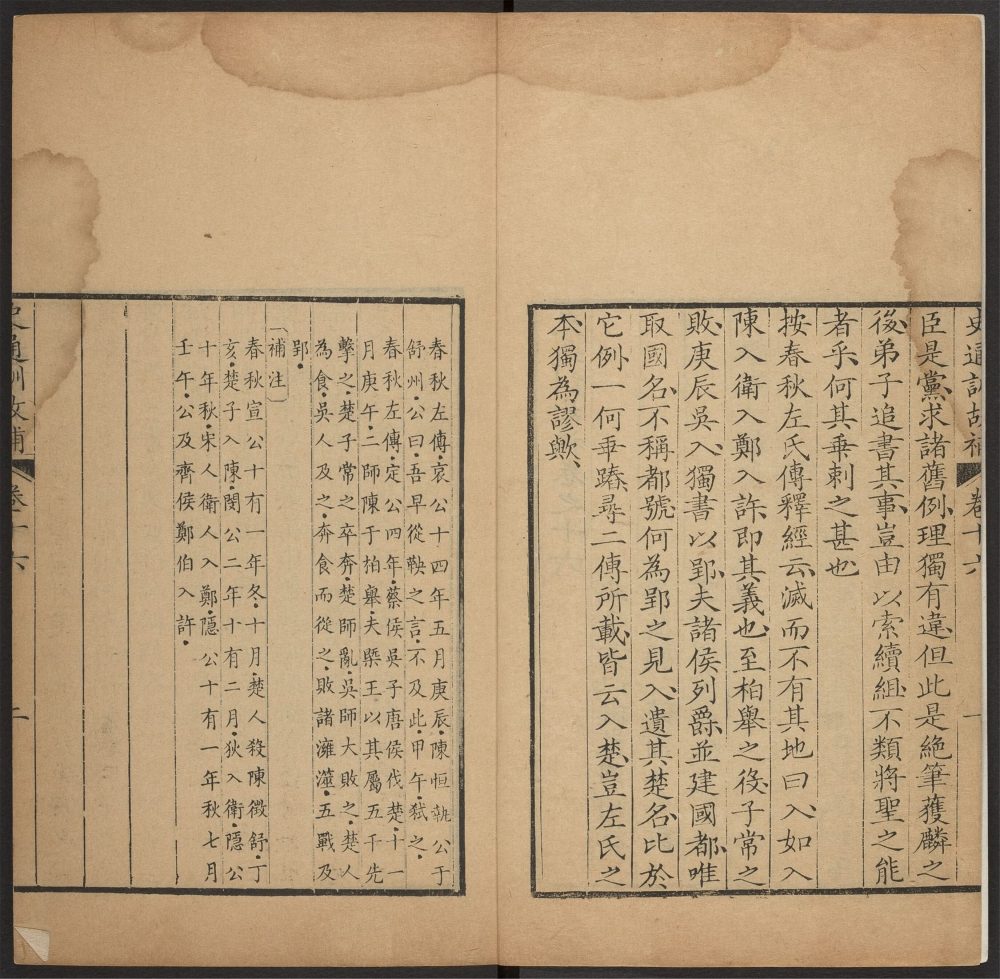 史通訓故補 卷十六 一
臣是黨求諸舊例理獨有違但此是絕筆獲麟之
後弟子追書其事豈由以索續組不類將聖之能
者乎何其乖剌之甚也
按春秋左氏傳釋經云滅而不有其地曰入如入
陳入衛入鄭入許即其義也至柏舉之役子常之
敗庚辰吳入獨書以郢夫諸侯列爵並建國都唯
取國名不稱都號何為郢之見入遺其楚名比於
它例一何乖踳尋二傳所載皆云入楚豈左氏之
本獨為謬歟
春秋左傳哀公十四年五月庚辰陳恒執公于
舒州公曰吾早從鞅之言不及此甲午弒之
春秋左傳定公四年蔡侯吳子唐侯伐楚十一
月庚午二師陳于柏舉夫槩王以其屬五千先
擊之楚子常之卒奔楚師亂吳師大敗之楚人
為食吳人及之奔食而從之敗諸濰澨五戰及
郢
補注
春秋宣公十有一年冬十月楚人殺陳徵舒丁
亥楚子入陳閔公二年十有二月狄入衛隱公
十年秋宋人衛人入鄭隱公十有一年秋七月
壬午公及齊侯鄭伯入許
史通訓故補 卷十六 二